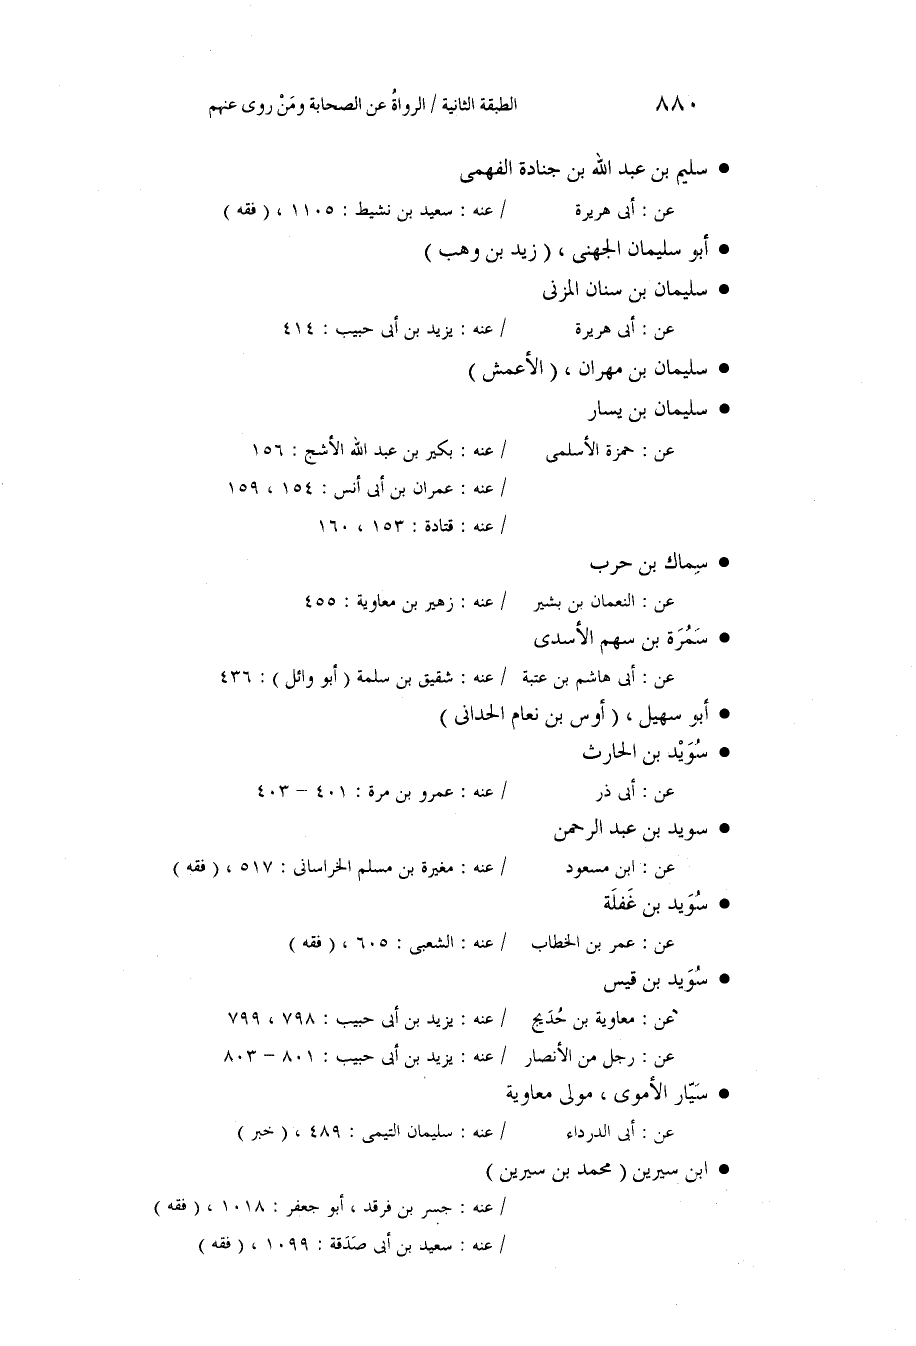 ٨٨٠ الطبقة الثانية / الرواةُ عن الصحابة ومَنْ روى عنهم
● سليم بن عبد الله بن جنادة الفهمى
عن : أبى هريرة / عنه : سعيد بن نشيط : ١١٠٥ ، ( فقه )
● أبو سليمان الجهنى ، ( زيد بن وهب )
● سليمان بن سنان المزنى
عن : أبى هريرة / عنه : يزيد بن أبى حبيب : ٤١٤
● سليمان بن مهران ، ( الأعمش )
● سليمان بن يسار
عن : حمزة الأسلمى / عنه : بكير بن عبد الله الأشج : ١٥٦
/ عنه : عمران بن أبى أنس : ١٥٤ ، ١٥٩
/ عنه : قتادة : ١٥٣ ، ١٦٠
● سِماك بن حرب
عن : النعمان بن بشير / عنه : زهير بن معاوية : ٤٥٥
● سَمُرَة بن سهم الأسدى
عن : أبى هاشم بن عتبة / عنه : شقيق بن سلمة ( أبو وائل ) : ٤٣٦
● أبو سهيل ، ( أوس بن نعام الحدانى )
● سُوَيْد بن الحارث
عن : أبى ذر / عنه : عمرو بن مرة : ٤٠١ – ٤٠٣
● سويد بن عبد الرحمن
عن : ابن مسعود / عنه : مغيرة بن مسلم الخراسانى : ٥١٧ ، ( فقه )
● سُوَيد بن غَفلَة
عن : عمر بن الخطاب / عنه : الشعبى : ٦٠٥ ، ( فقه )
● سُوَيد بن قيس
عن : معاوية بن حُدَيج / عنه : يزيد بن أبى حبيب : ٧٩٨ ، ٧٩٩
عن : رجل من الأنصار / عنه : يزيد بن أبى حبيب : ٨٠١ – ٨٠٣
● سَيّار الأموى ، مولى معاوية
عن : أبى الدرداء / عنه : سليمان التيمى : ٤٨٩ ، ( خبر )
● ابن سيرين ( محمد بن سيرين )
/ عنه : جسر بن فرقد ، أبو جعفر : ١٠١٨ ، ( فقه )
/ عنه : سعيد بن أبى صَدَقة : ١٠٩٩ ، ( فقه )